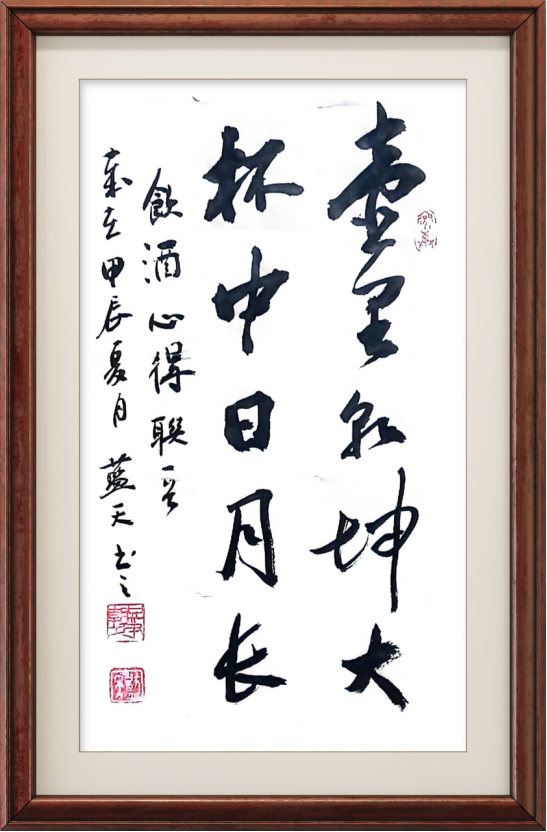 壶里乾坤大
杯中日月长
飲酒心得聯一
歲在甲辰夏月藍天书之